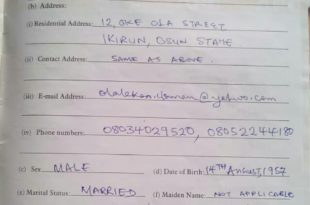 (b) Address:
(i) Residential Address: 12, OKE OLA STREET
IKIRUN, OSUN STATE
(ii) Contact Address: SAME AS ABOVE.
(iii) E-mail Address: @yahoo.com
(iv) Phone numbers: 08034029520, 08052244180
(c) Sex MALE (d) Date of Birth: 14TH August, 1957
(e) Marital Status: MARRIED (f) Maiden Name: NOT APPLICABLE